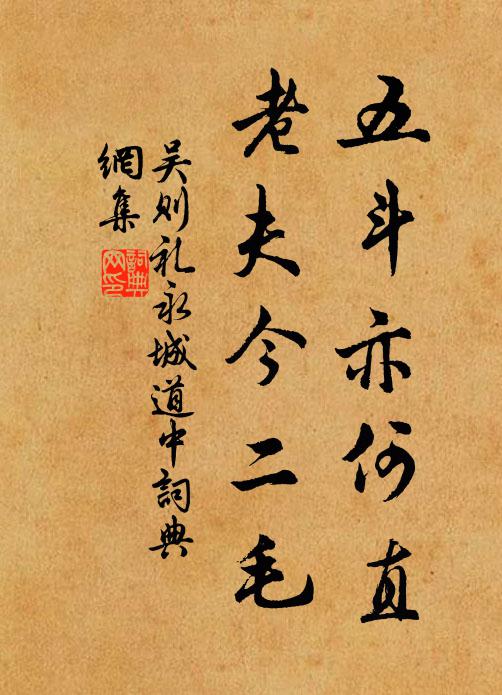 五斗亦何直
老夫今二毛
吴则礼永城道中詞典
網集
詞典
网印